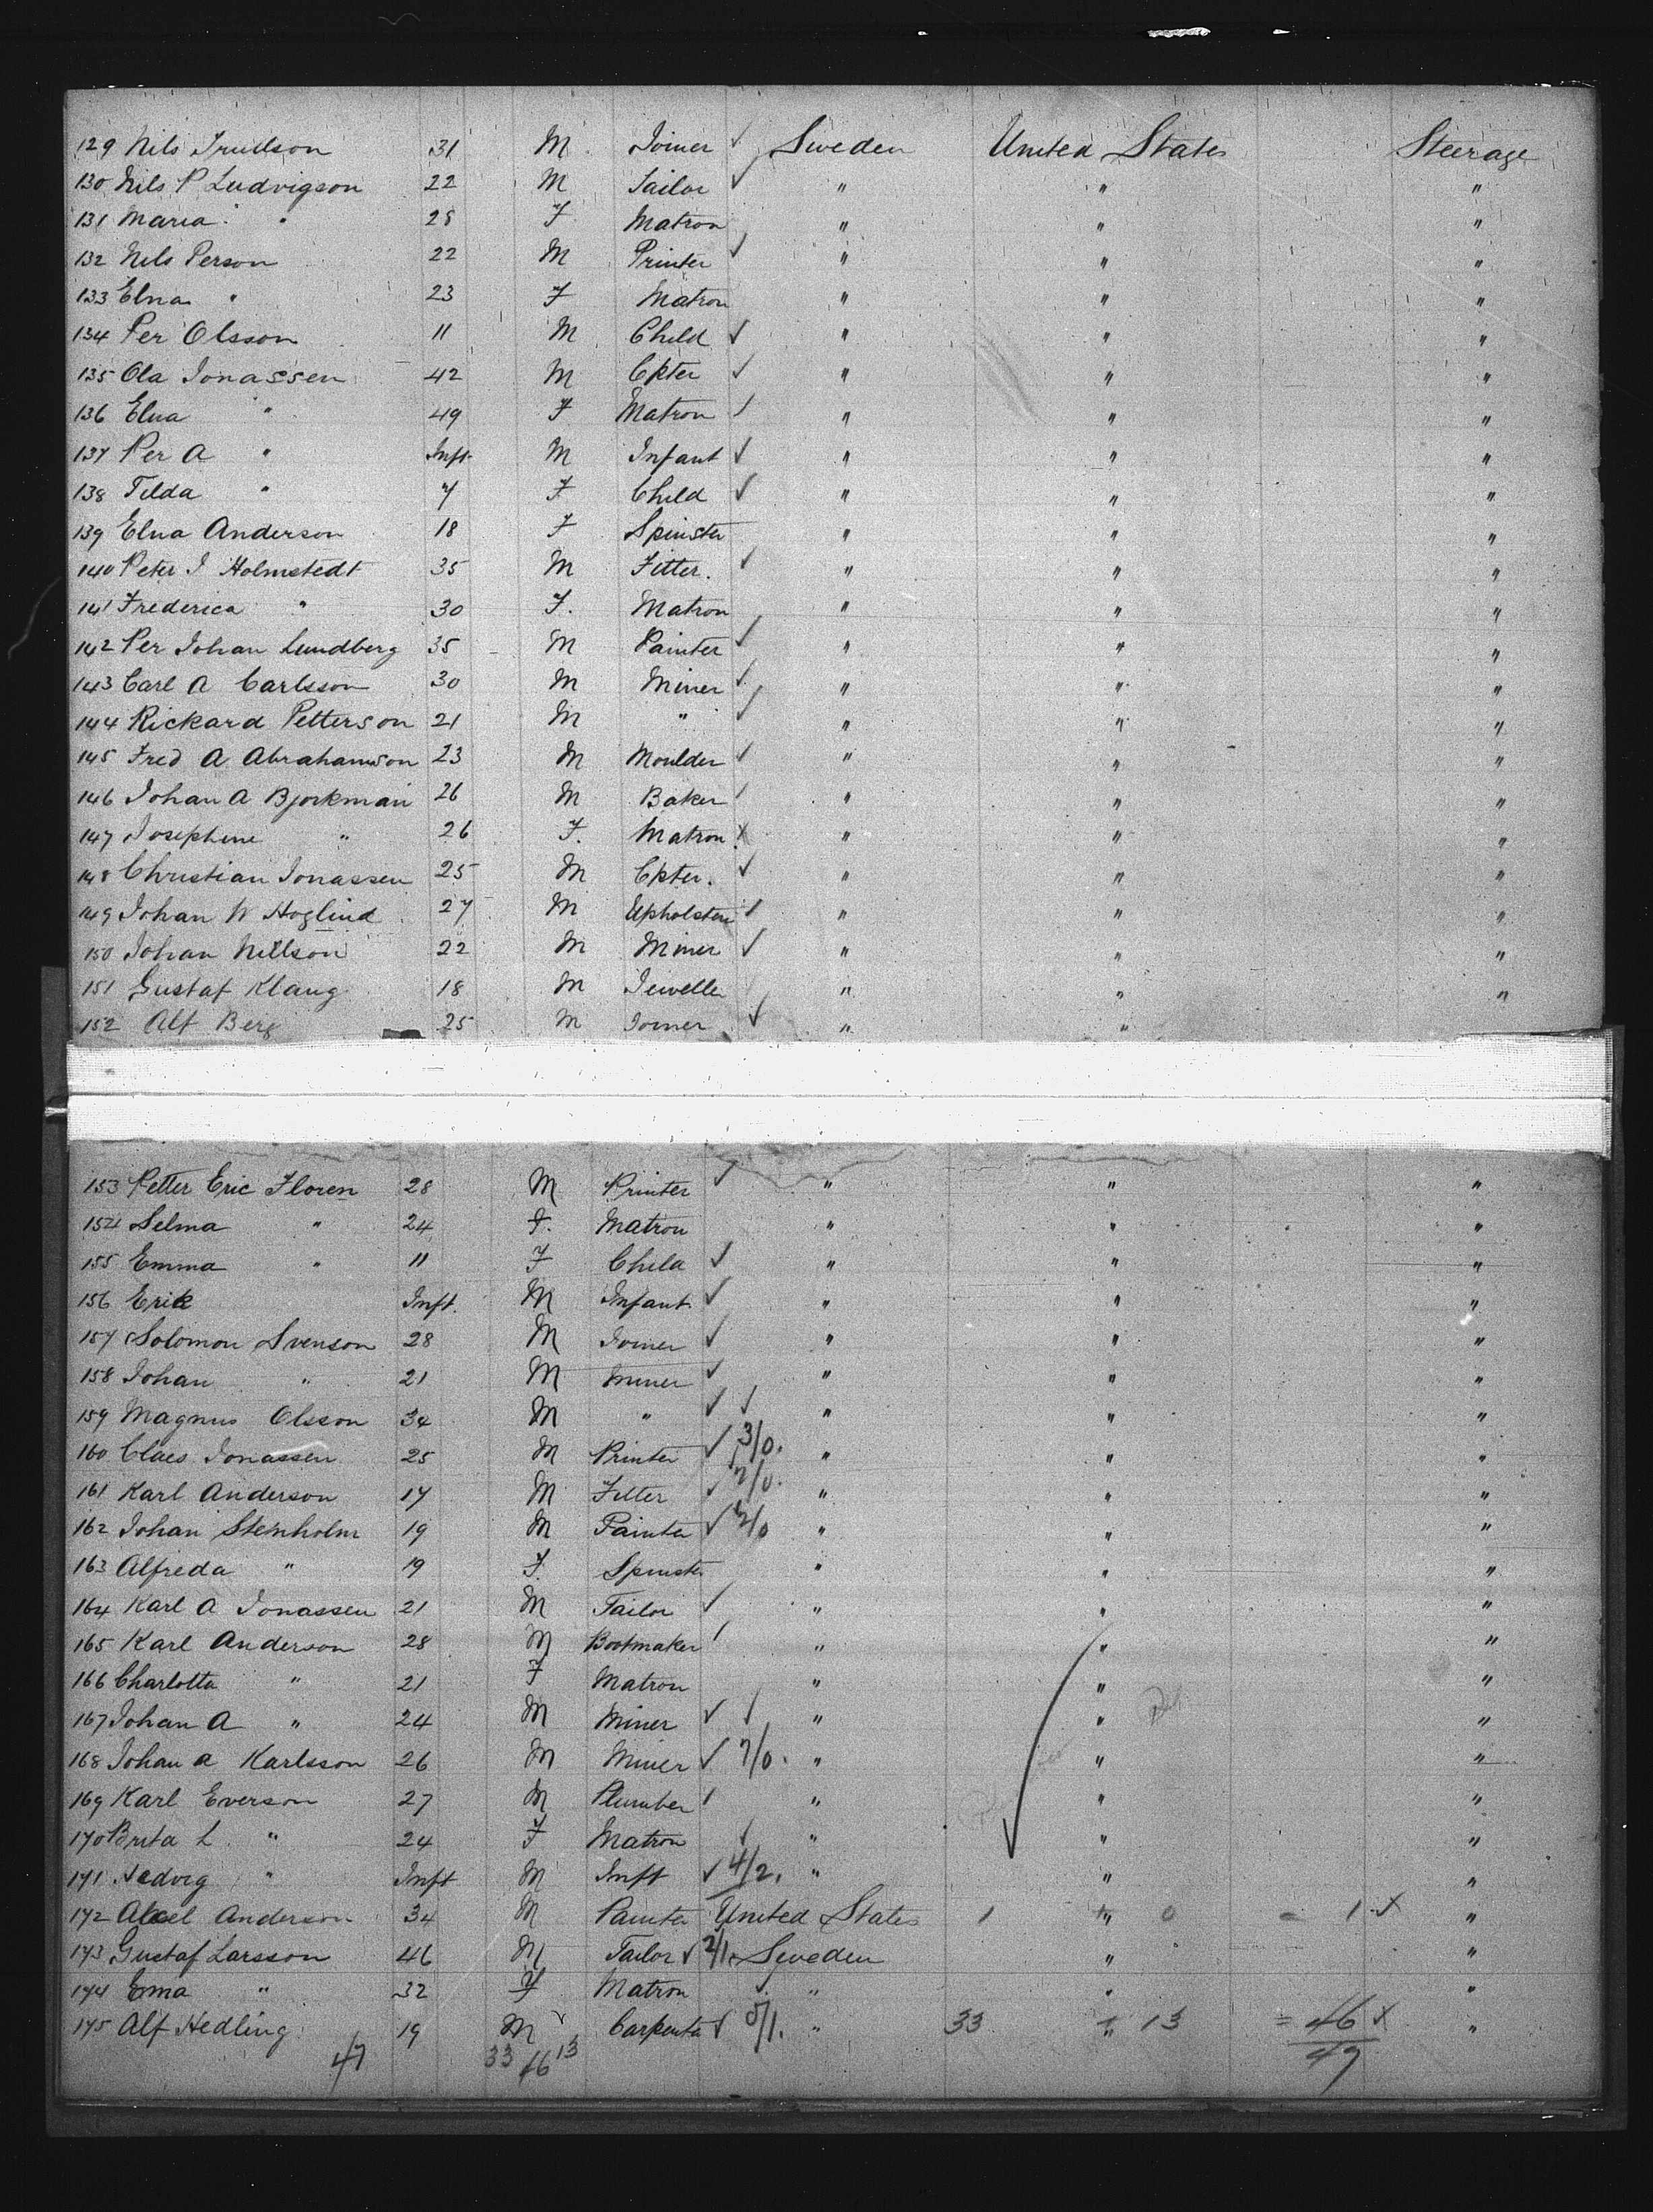 129 Nils Truilson 31 M Joiner ✓ Sweden United States Steerage
130 Nils P Ludvigson 22 M Tailor ✓ " " "
131 Maria " 28 F Matron " " "
132 Nils Person 22 M Printer ✓ " " "
133 Elna " 23 F Matron " " "
134 Per Olsson 11 M Child ✓ " " "
135 Ola Jonassen 42 M Cpter ✓ " " "
136 Elna " 49 F Matron ✓ " " "
137 Per A " Inft M Infant ✓ " " "
138 Tilda " 7 F Child ✓ " " "
139 Elna Anderson 18 F Spinster " " "
140 Peter J Holmstedt 35 M Fitter. ✓ " " "
141 Frederica " 30 F. Matron " " "
142 Per Johan Lundberg 35 M Painter ✓ " " "
143 Carl A Carlsson 30 M Miner ✓ " " "
144 Rickard Petterson 21 M " ✓ " " "
145 Fred A Abrahamson 23 M Moulder ✓ " " "
146 Johan A Bjorkman 26 M Baker ✓ " " "
147 Josephine " 26 F. Matron " " "
148 Christian Jonassen 25 M Cpter. ✓ " " "
149 Johan W Hoglind 27 M Upholster ✓ " " "
150 Johan Nillson 22 M Miner ✓ " " "
151 Gustaf Klang 18 M Jeweller " " "
152 Alf Berg 25 M Joiner ✓ " "
153 Petter Eric Floren 28 M Printer ✓ " " "
154 Selma " 24 F. Matron " " "
155 Emma " 11 F Child ✓ " " "
156 Erik Inft. M Infant ✓ " " "
157 Solomon Svenson 28 M Joiner ✓ " " "
158 Johan " 21 M Miner ✓ " " "
159 Magnus Olsson 34 M " ✓ ✓ " " "
160 Claes Jonassen 25 M Printer ✓ 3/0. " " "
161 Karl Anderson 17 M Fitter ✓ 7/0. " " "
162 Johan Stenholm 19 M Painter ✓ " " "
163 Alfreda " 19 F. Spinster " " "
164 Karl A Jonassen 21 M Tailor ✓ " " "
165 Karl Anderson 28 M Bootmaker ✓ " " "
166 Charlotta " 21 F Matron " " "
167 Johan A " 24 M Miner ✓ ✓ " " "
168 Johan A Karlsson 26 M Miner ✓ 7/0. " " "
169 Karl Everson 27 M Plumber ✓ " " "
170 Brita L " 24 F Matron ✓ " " "
171 Hedvig " Inft M Inft ✓ 4/2. " " "
172 Alxel Anderson 34 M Painter United States 1 " 0 = 1 x "
173 Gustaf Larsson 46 M Tailor ✓ 2/1. Sweden " "
174 Erna " 32 F Matron " " "
175 Alf Hedling 19 M Carpenter ✓ 5/1. " 33 " 13 = 46 x "
47 33 46 13 47